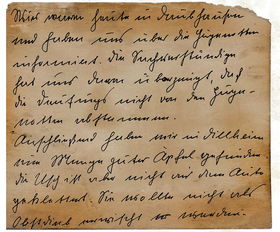 Wir waren heute in Daubhausen
und haben uns über die Hugenotten
informiert. Die Sachverständige
hat uns davon überzeugt, daß
die Deutungs nicht von den Huge-
notten abstammen.
Anschließend haben wir in Dillheim
eine Menge guter Äpfel gefunden.
die Usch ist aber nicht auf dem Auto
geklettert. Sie wollte nicht als
Obstdieb erwischt zu werden.